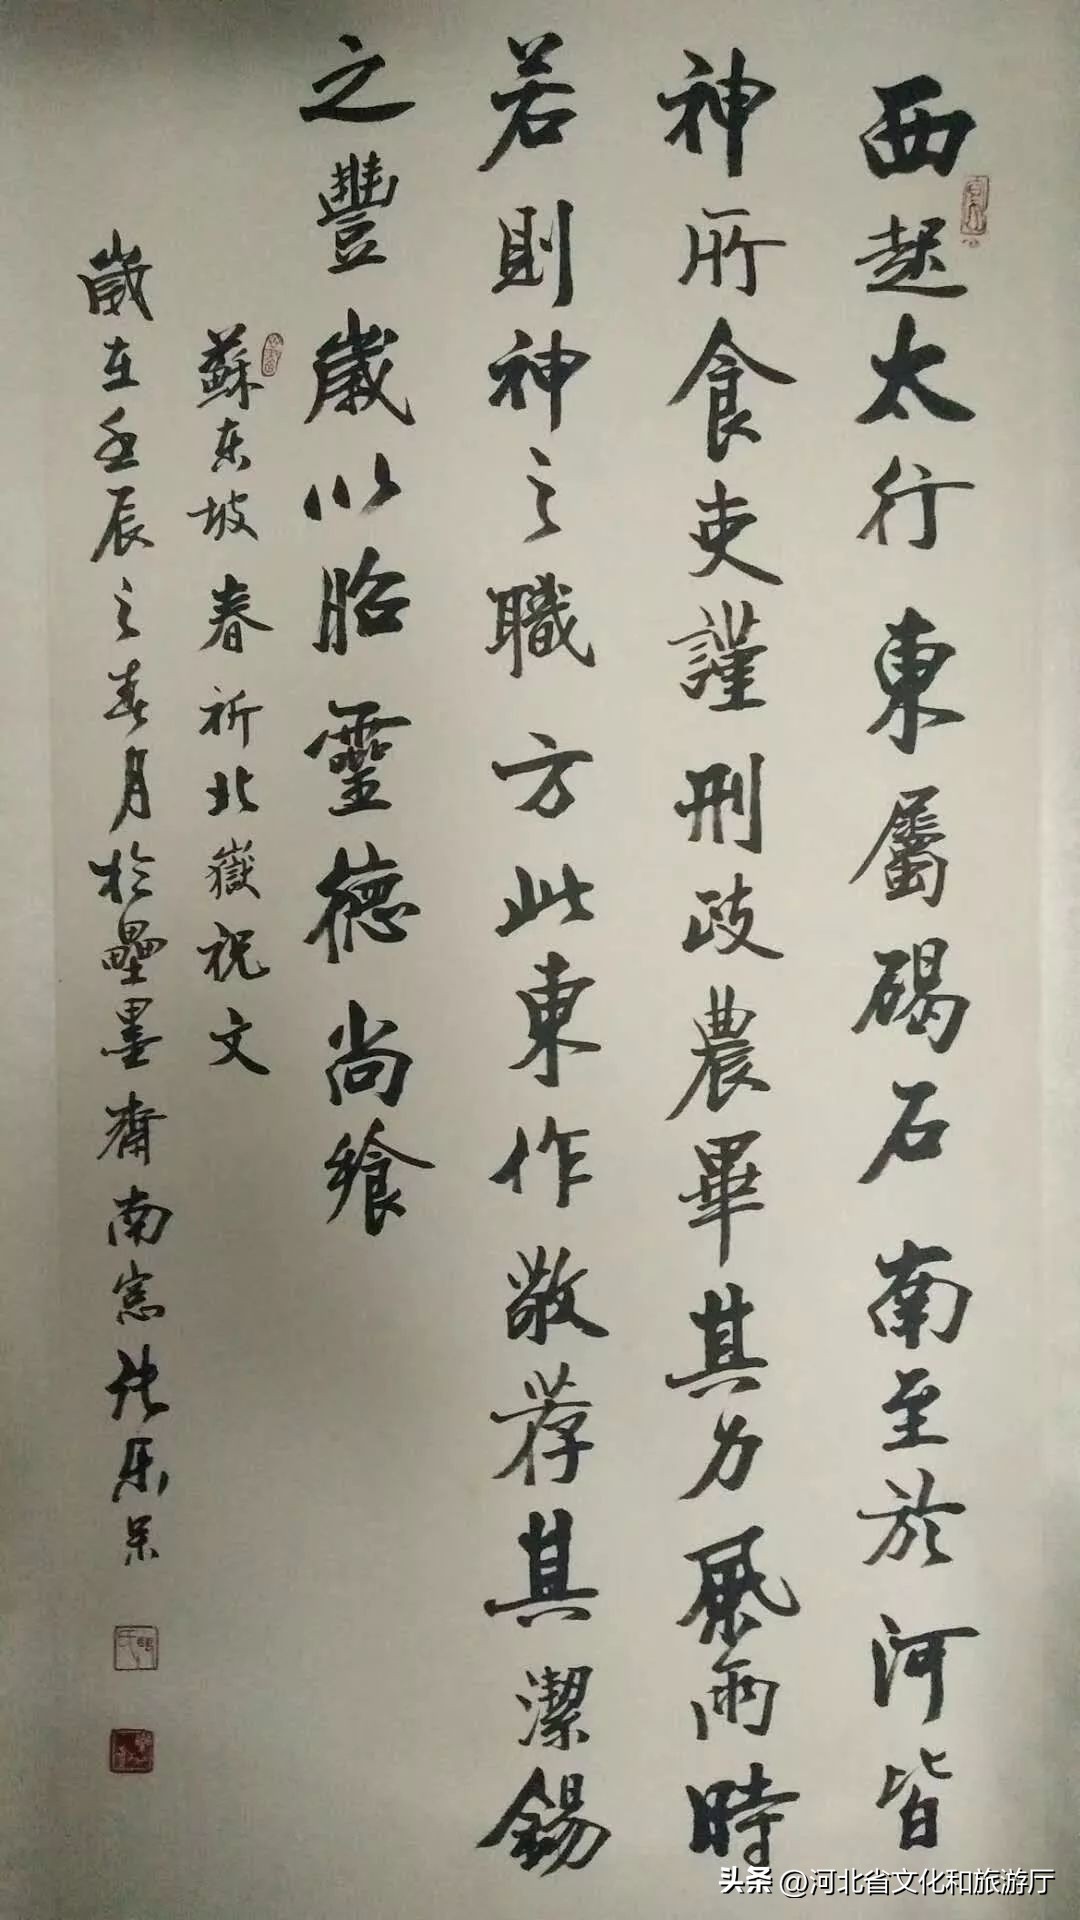 西起太行東屬碣石南至於河皆
神所食吏謹刑政農畢其力風雨時
若則神之職方此東作敬荐其潔錫
之豐歲以昭靈德尚飨
蘇东坡春祈北嶽祝文
歲在壬辰之春月於壘墨齋南窓張乐
头条 @河北省文化和旅游厅